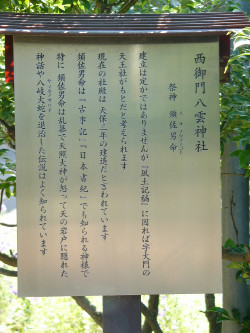 西御門八雲神社
祭神 須佐男命
建立は定かではありませんが『風土記稿』に因れば字大門の
天王社がもとだと考えられます
現在の社殿は天保三年の建造だとされています
須佐男命は『古事記』『日本書紀』でも知られる神様で
特に須佐男命は乱暴で天照大神が怒って天の岩戸に隠れた
神話や八岐大蛇を退治した伝説はよく知られています